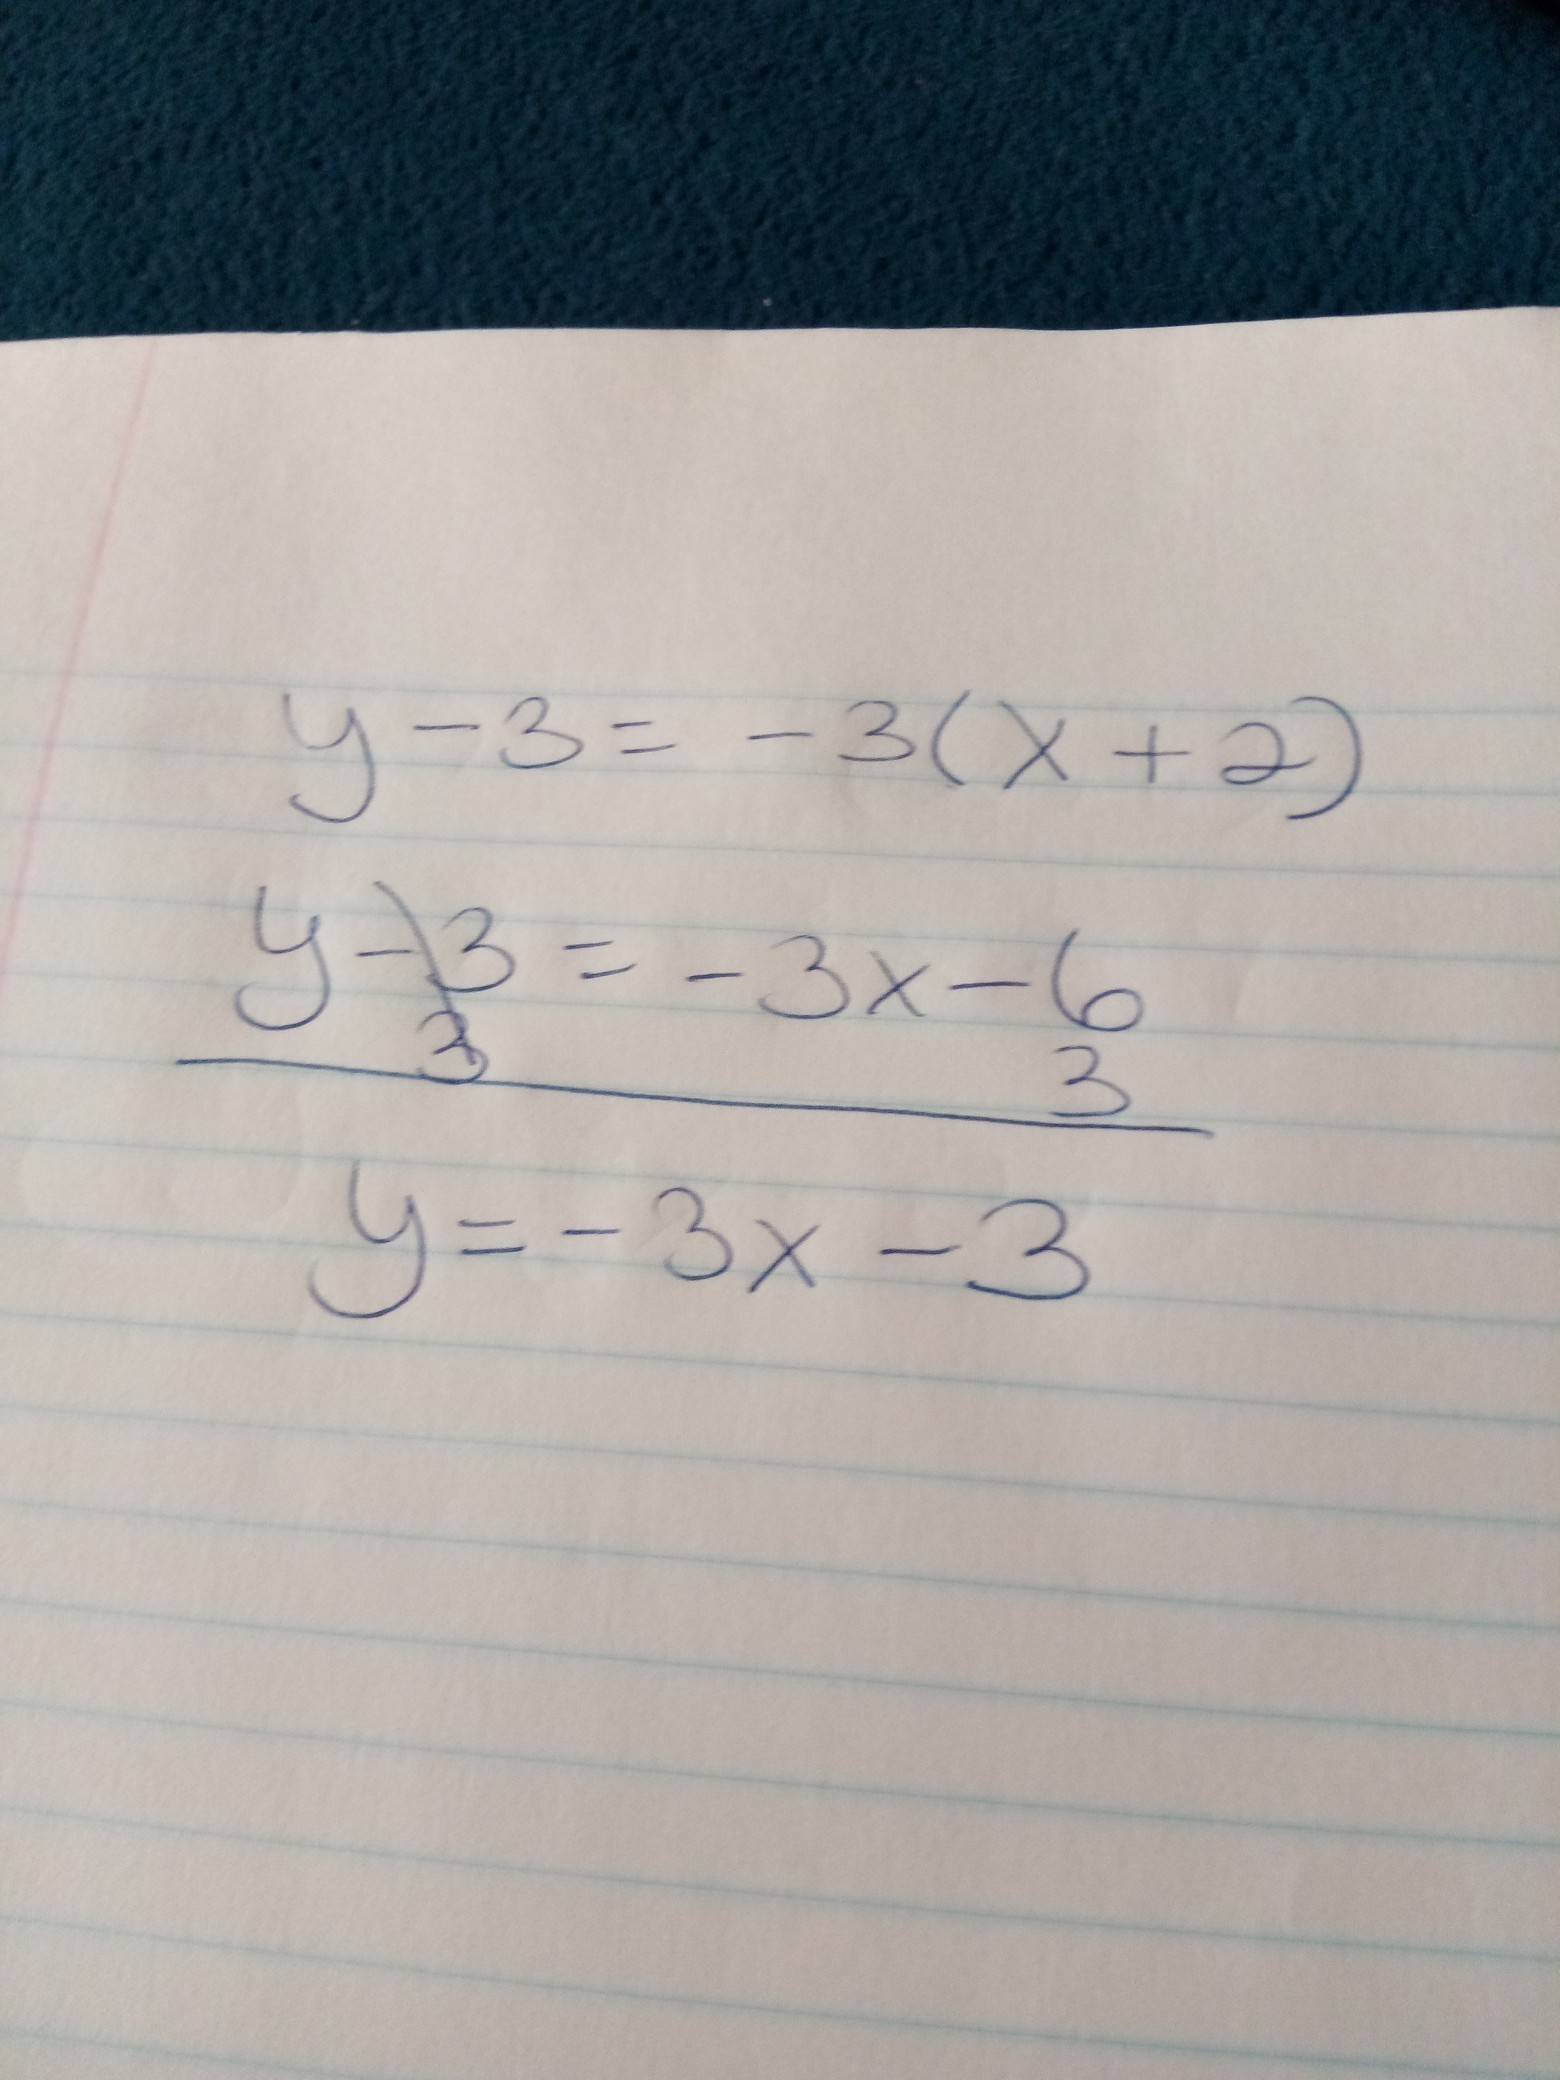 y - 3 = - 3(x + 2)
y - 3 = - 3x - 6
3 3
y = - 3x - 3